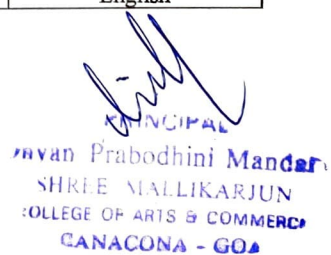 English
PRINCIPAL
Prabodhini Mandal
SHREE MALLIKARJUN
COLLEGE OF ARTS & COMMERCE
CANACONA - GOA